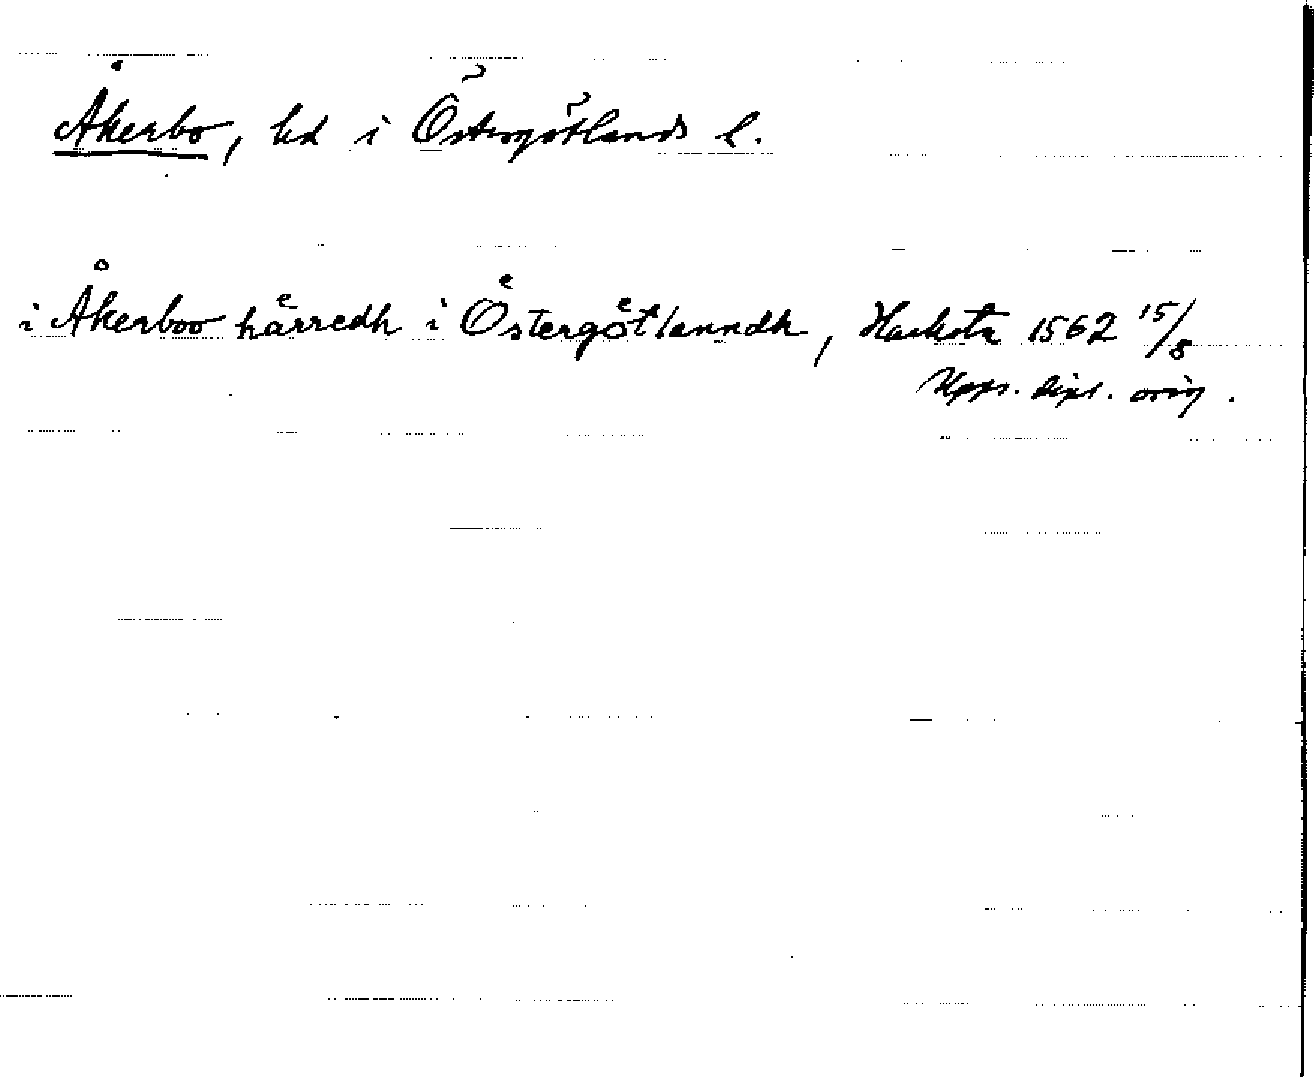 Åkerbo, hd i Östergötlands l.
i Åkerboo härredh i Östergötlanndh, Harksta 1562 15/8
Upps. dipl. orig.